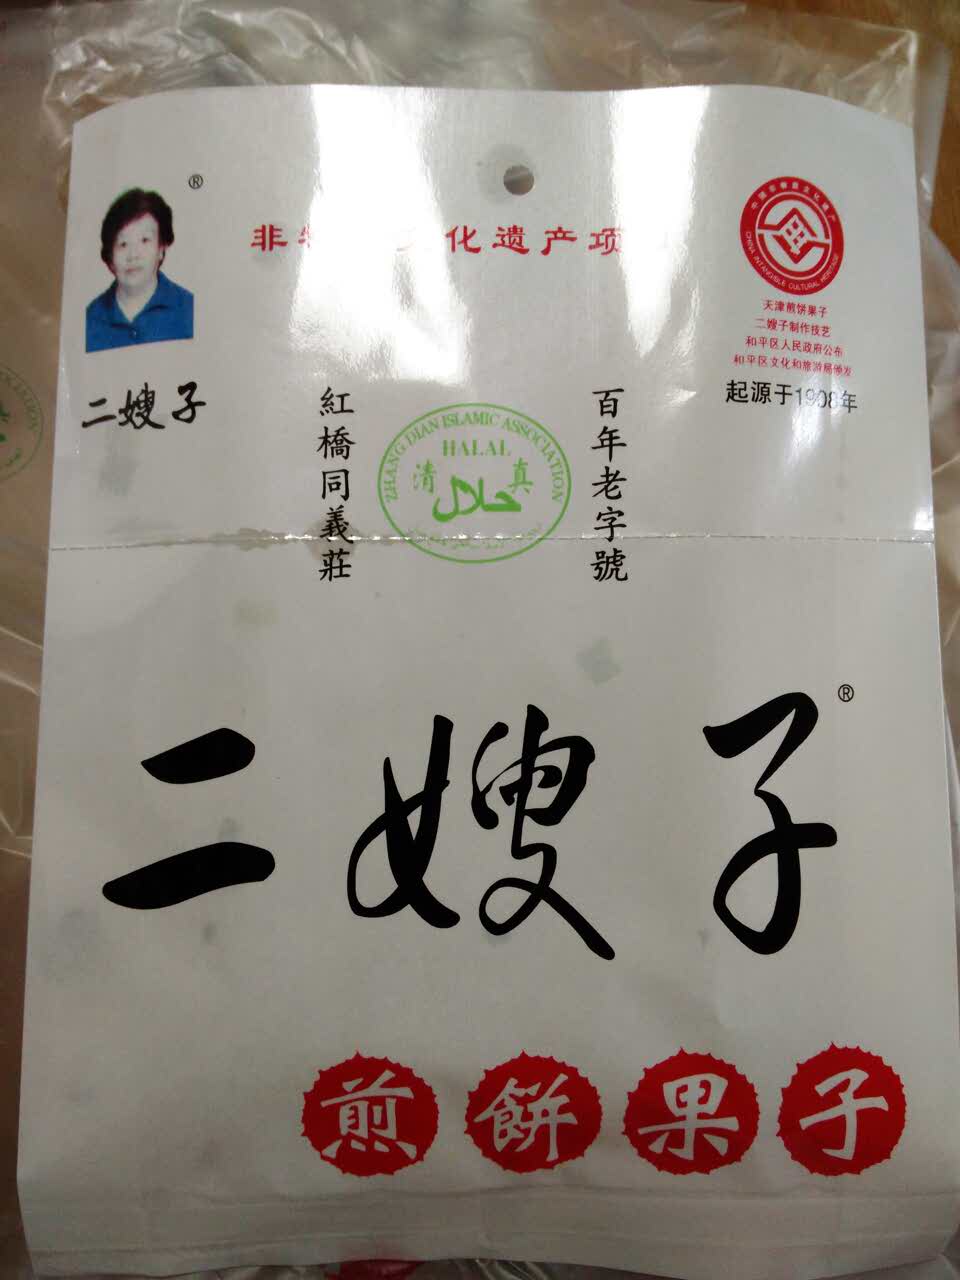 ®
非物 化遗产项
中国非物质文化遗产
CHINA INTANGIBLE CULTURAL HERITAGE
天津煎饼果子
二嫂子制作技艺
和平区人民政府公布
和平区文化和旅游局颁发
起源于1908年
二嫂子
紅橋同義莊
ZHANG DIAN ISLAMIC ASSOCIATION
HALAL
清真
حلال
百年老字號
二嫂子®
煎餅果子